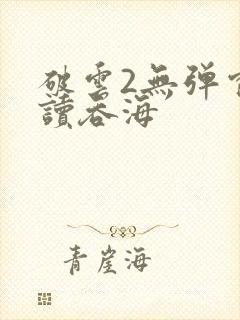 破雲2無弹
讀吞海
青崖海